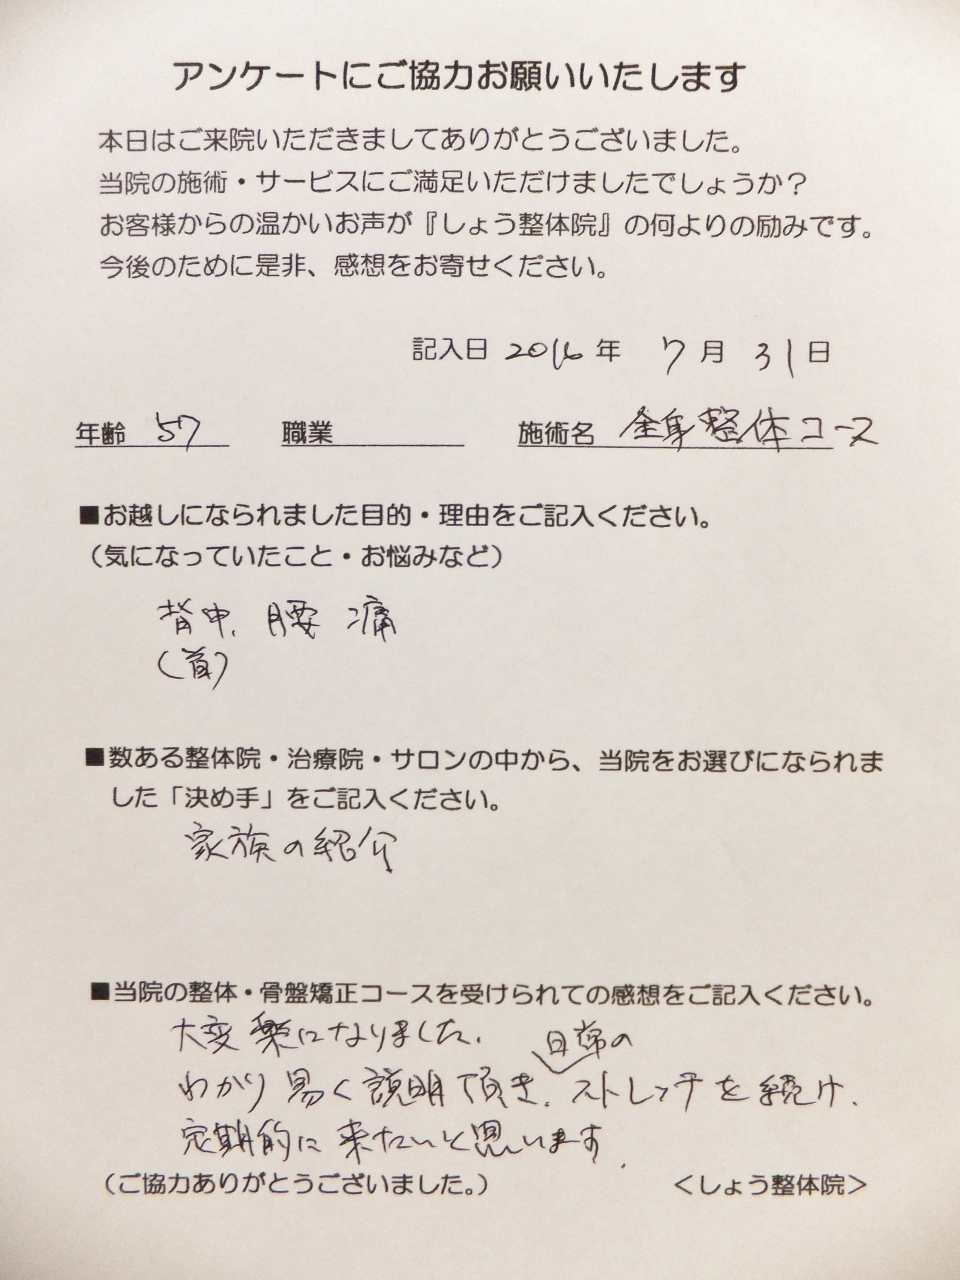 アンケートにご協力お願いいたします
本日はご来院いただきましてありがとうございました。
当院の施術・サービスにご満足いただけましたでしょうか？
お客様からの温かいお声が『しょう整体院』の何よりの励みです。
今後のために是非、感想をお寄せください。
記入日 2016 年 7 月 31 日
年齢 57 職業 施術名 全身整体コース
■お越しになられました目的・理由をご記入ください。
（気になっていたこと・お悩みなど）
背中、腰 痛
（首）
■数ある整体院・治療院・サロンの中から、当院をお選びになられま
した「決め手」をご記入ください。
家族の紹介
■当院の整体・骨盤矯正コースを受けられての感想をご記入ください。
大変楽になりました。
日常の
わかり易く説明頂き、ストレッチを続け、
定期的に来たいと思います。
（ご協力ありがとうございました。） ＜しょう整体院＞